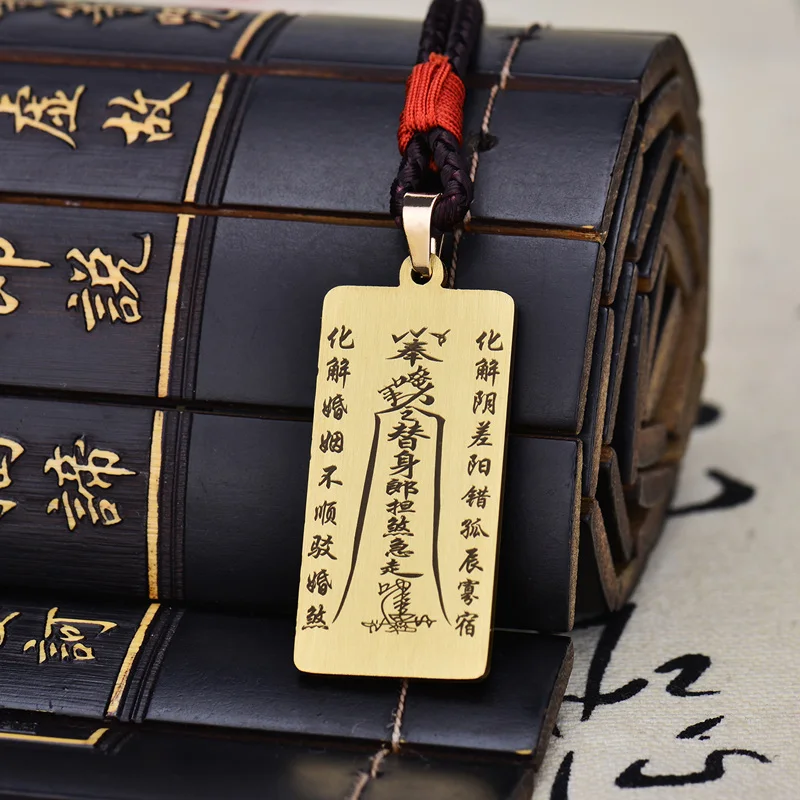 化解阴差阳错孤辰寡宿
奉
令替身郎担煞急走
化解婚姻不顺驳婚煞
虛故
說
諦
訶